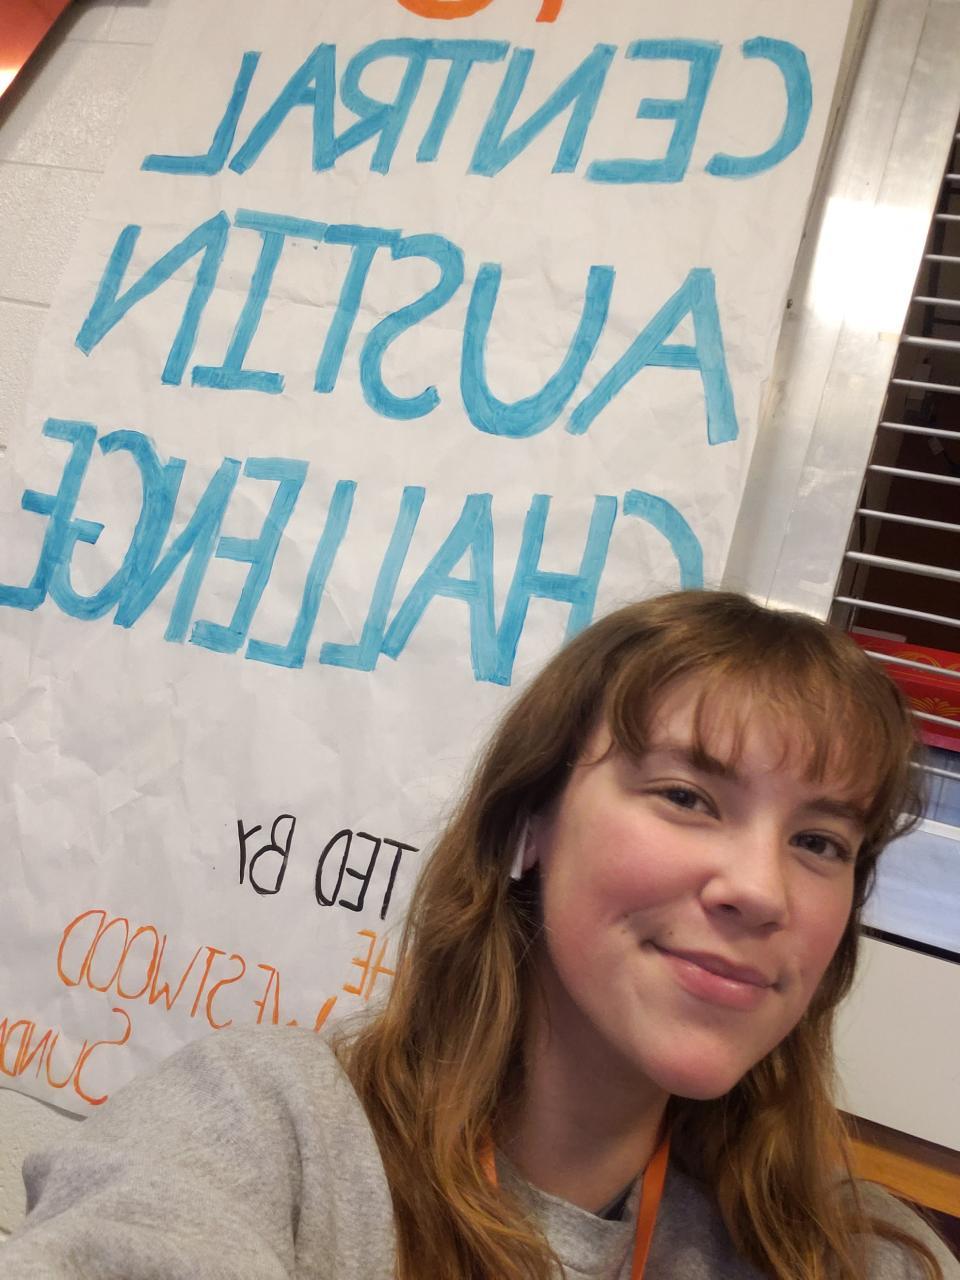 TO
CENTRAL
AUSTIN
CHALLENGE
TED BY
HE WESTWOOD